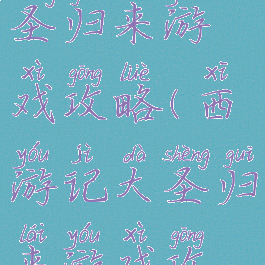 圣归来游
xì gōng lüè xī
戏攻略(西
yóu jì dà shèng guī
游记大圣归
lái yóu xì gōng
来游戏攻